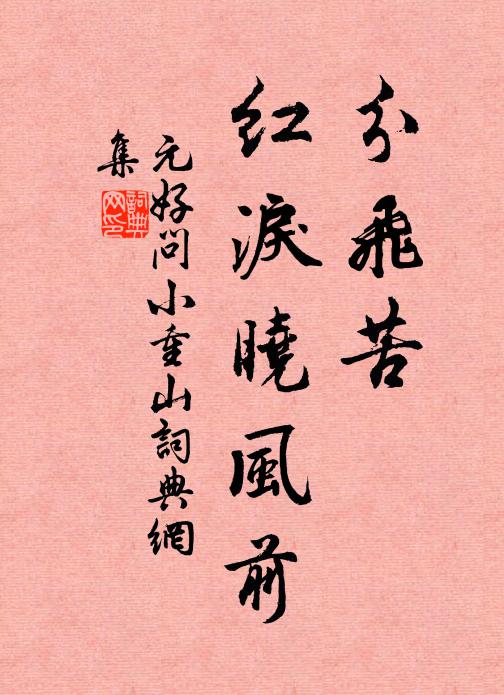 分飛苦
紅淚曉風前
元好問小重山詞典網
集
詞典
网印